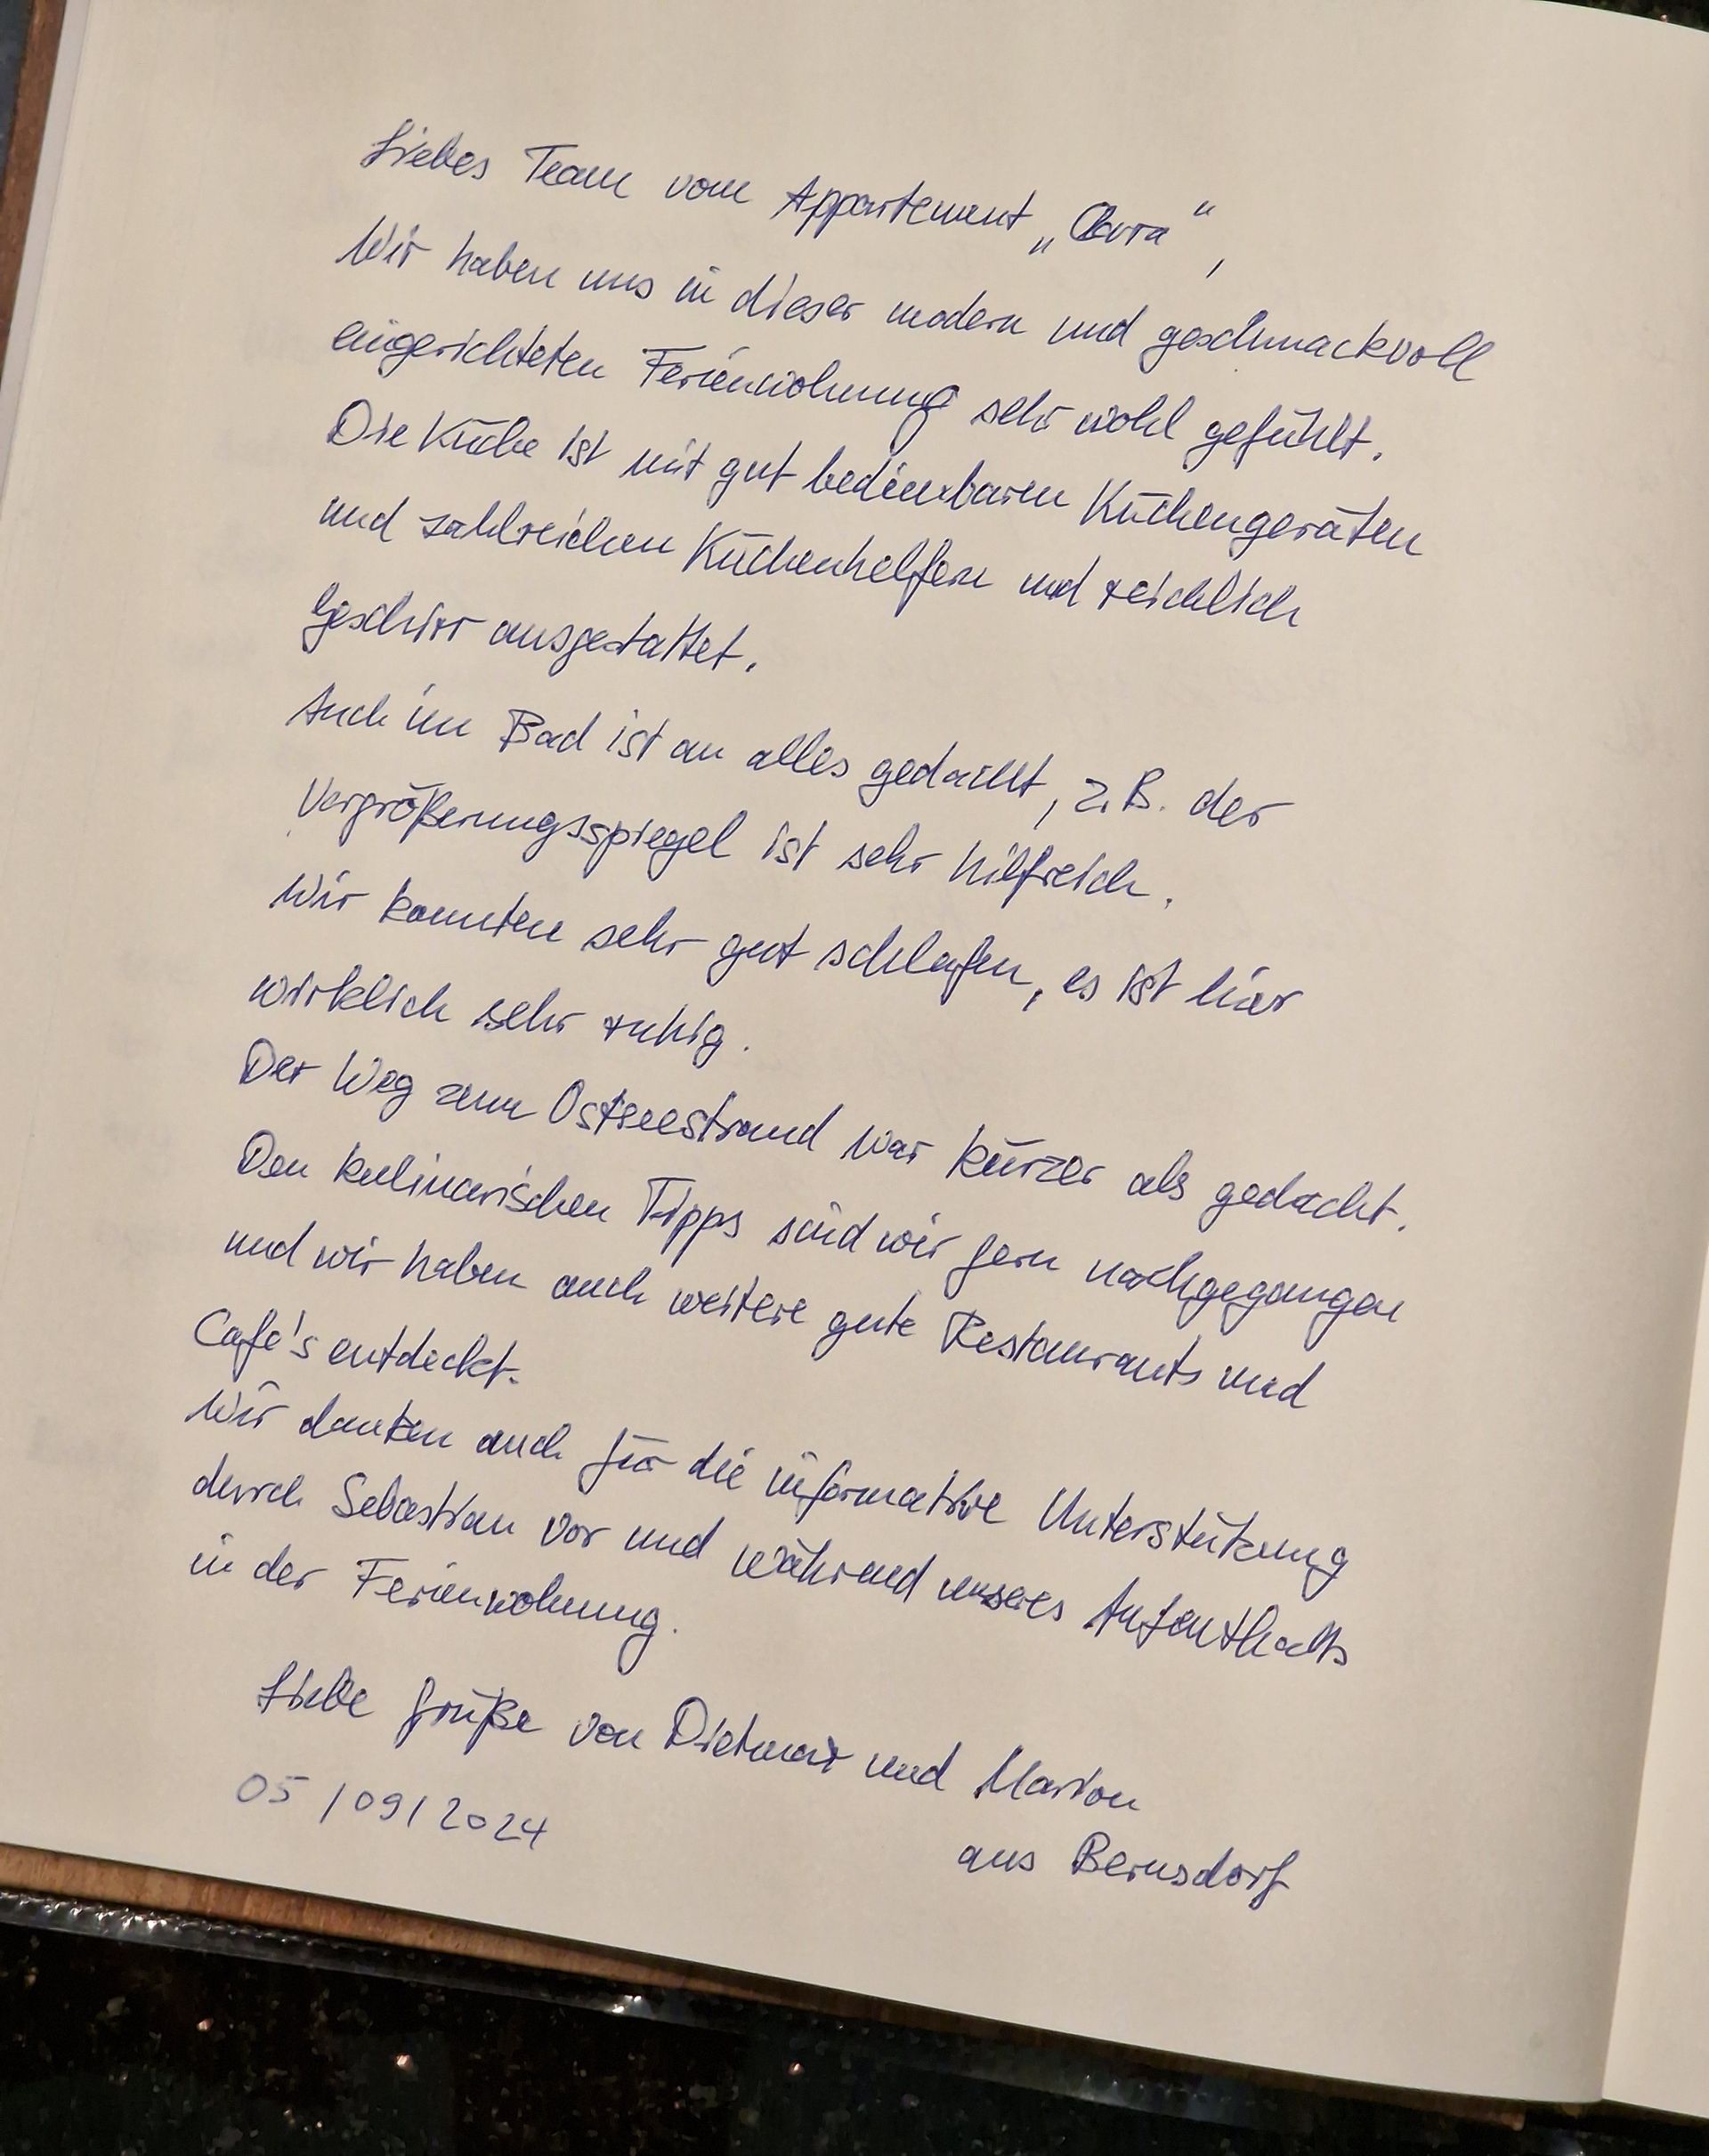 Liebes Team vom Appartement „Clara“,
Wir haben uns in dieser modern und geschmackvoll
eingerichteten Ferienwohnung sehr wohl gefühlt.
Die Küche ist mit gut bedienbaren Küchengeräten
und zahlreichen Küchenhelfern und reichlich
Geschirr ausgestattet.
Auch im Bad ist an alles gedacht, z.B. der
Vergrößerungsspiegel ist sehr hilfreich.
Wir konnten sehr gut schlafen, es ist hier
wirklich sehr ruhig.
Der Weg zum Ostseestrand war kürzer als gedacht.
Den kulinarischen Tipps sind wir gern nachgegangen
und wir haben auch weitere gute Restaurants und
Café's entdeckt.
Wir danken auch für die informative Unterstützung
durch Sebastian vor und während unseres Aufenthalts
in der Ferienwohnung.
Liebe Grüße von Dietmar und Marion
05/09/2024
aus Bernsdorf